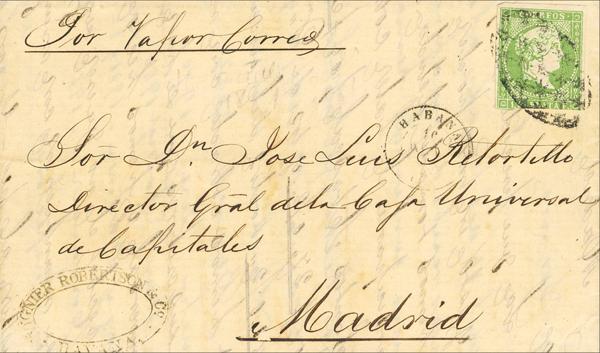 Por Vapor Correo
CORREOS
HABANA
16
Sõr. Dn. Jose Luis Retortillo
Director Gral de la Caja Universal
de Capitales
Madrid
ROBERTSON & Co.
HABANA